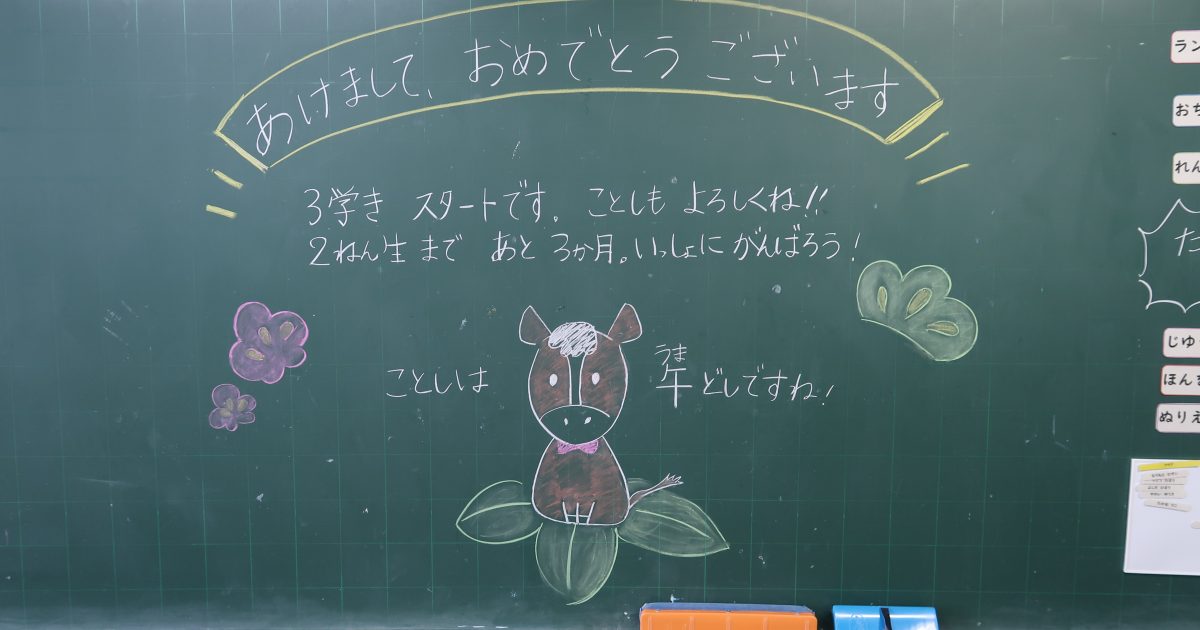 あけまして、おめでとう ございます
3学き スタートです。ことしも よろしくね!!
2ねん生 まで あと 3か月。いっしょに がんばろう!
ことしは 午どしですね!
うま